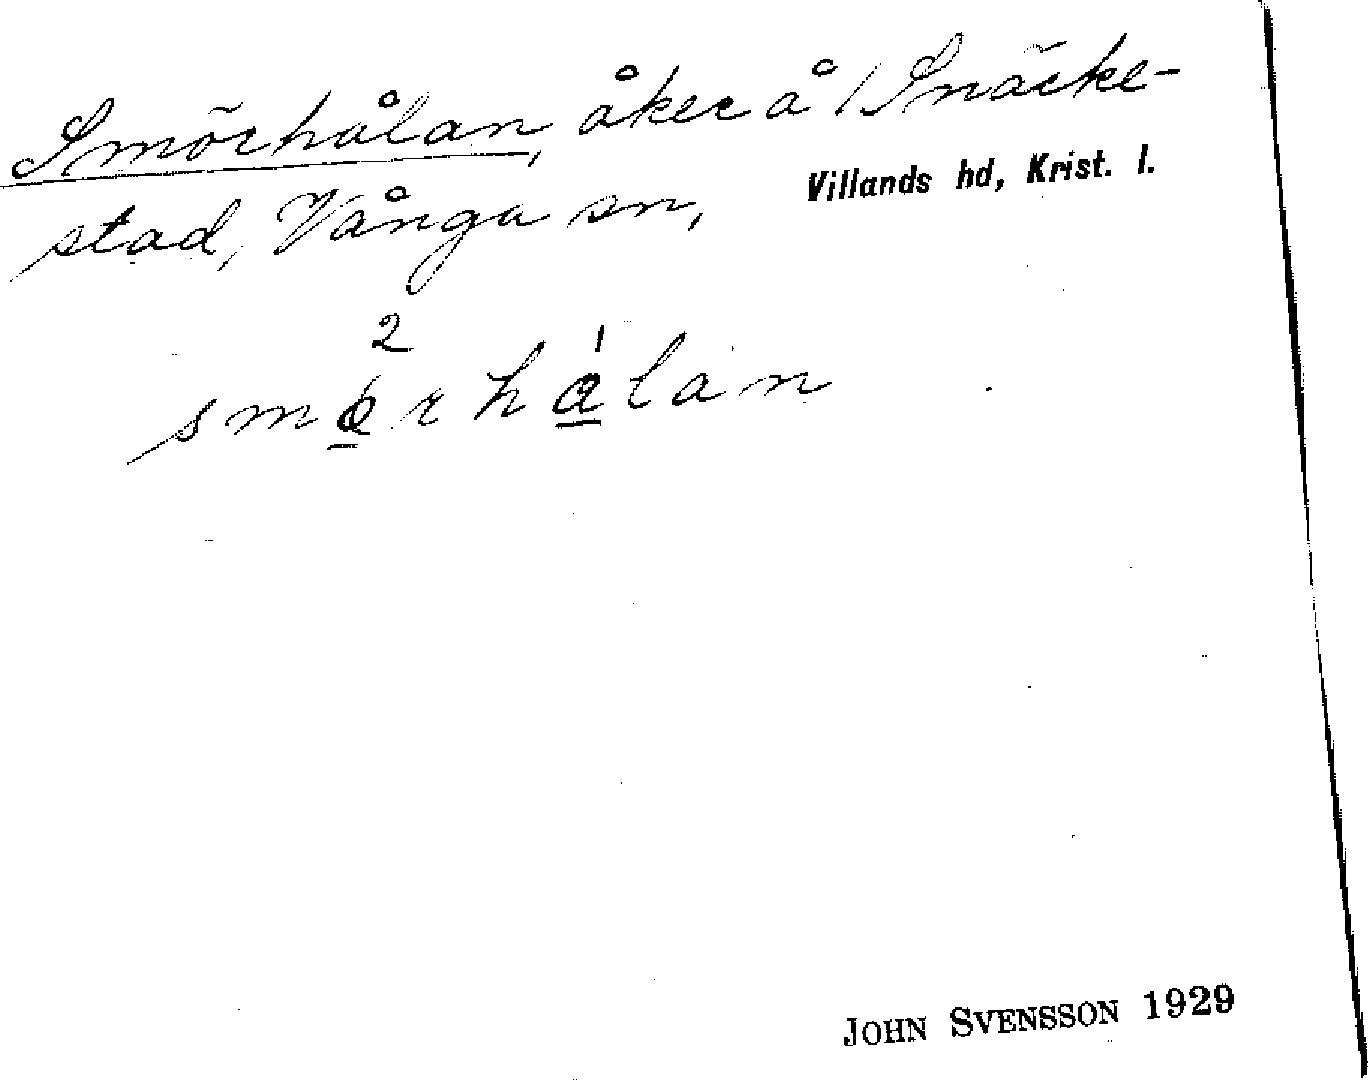 Smörhålan, åker å / Snäcke-
stad, Vånga sn, Villands hd, Krist. l.
2 1
smørhålan
JOHN SVENSSON 1929